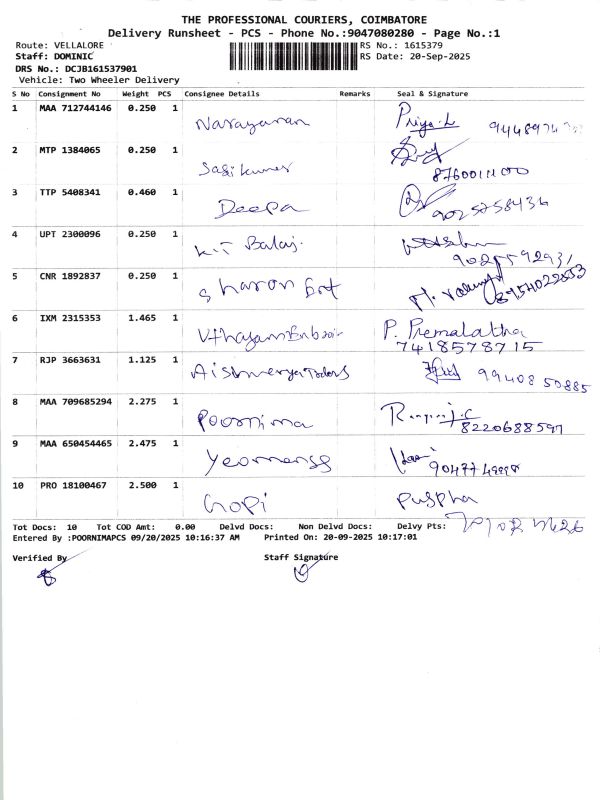 THE PROFESSIONAL COURIERS, COIMBATORE
Delivery Runsheet - PCS - Phone No.:9047080280 - Page No.:1
Route: VELLALORE RS No.: 1615379
Staff: DOMINIC RS Date: 20-Sep-2025
DRS No.: DCJB161537901
Vehicle: Two Wheeler Delivery
S No Consignment No Weight PCS Consignee Details Remarks Seal & Signature
1 MAA 712744146 0.250 1 Narayanan Priya.L
2 MTP 1384065 0.250 1 Sasikumar
3 TTP 5408341 0.460 1 Deepa 9025758436
4 UPT 2300096 0.250 1 K.T Balaj.
5 CNR 1892837 0.250 1 Sharon Ent
6 IXM 2315353 1.465 1 P. Premalatha
7418578715
7 RJP 3663631 1.125 1 99408 50885
8 MAA 709685294 2.275 1 Poornima
8220688597
9 MAA 650454465 2.475 1 Yeomenss
10 PRO 18100467 2.500 1 Gopi Puspha
Tot Docs: 10 Tot COD Amt: 0.00 Delvd Docs: Non Delvd Docs: Delvy Pts:
Entered By :POORNIMAPCS 09/20/2025 10:16:37 AM Printed On: 20-09-2025 10:17:01
Verified By Staff Signature